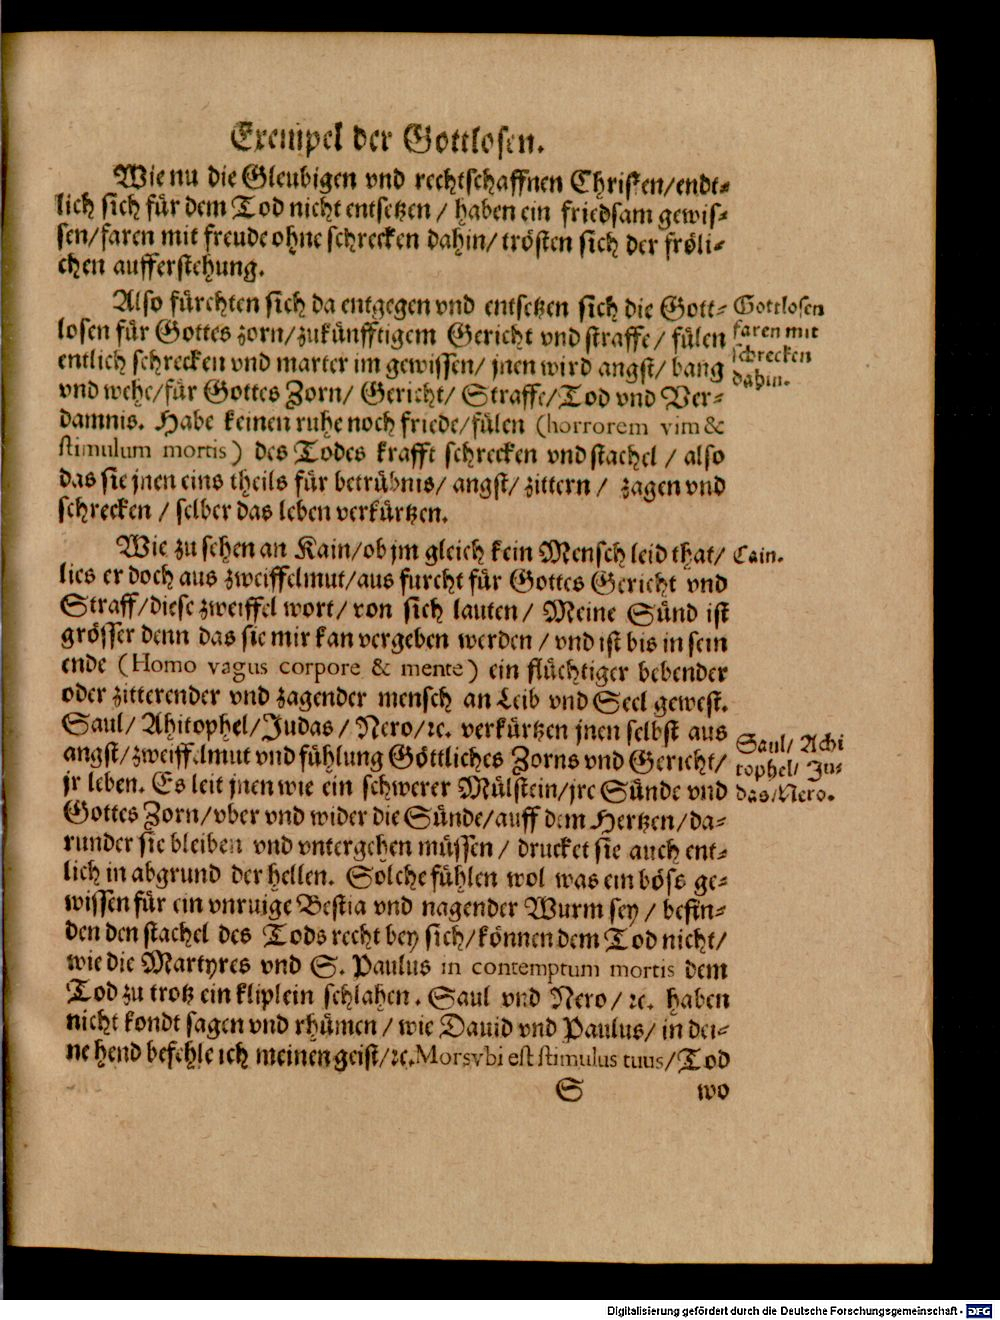 Exempel der Gottlosen.
Wie nu die Gleubigen vnd rechtschaffnen Christen/endt-
lich sich für dem Tod nicht entsetzen / haben ein friedsam gewis-
sen/faren mit freude ohne schrecken dahin/ trösten sich der fröli-
chen aufferstehung.
Also fürchten sich da entgegen vnd entsetzen sich die Gott-
losen für Gottes zorn/zukünfftigem Gericht vnd straffe/ fülen
entlich schrecken vnd marter im gewissen/ jnen wird angst/ bang
vnd wehe/für Gottes Zorn/ Gericht/ Straffe/Tod vnd Ver-
damnis. Habe keinen ruhe noch friede/fülen (horrorem vim &
stimulum mortis) des Todes krafft schrecken vnd stachel / also
das sie jnen eins theils für betrübnis/ angst/ zittern / zagen vnd
schrecken / selber das leben verkürtzen.
Gottlosen
faren mit
schrecken
dahin.
Wie zu sehen an Kain/ob jm gleich kein Mensch leid that/
lies er doch aus zweiffelmut/aus furcht für Gottes Gericht vnd
Straff/diese zweiffel wort/ von sich lauten/ Meine Sünd ist
grösser denn das sie mir kan vergeben werden / vnd ist bis in sein
ende (Homo vagus corpore & mente) ein flüchtiger bebender
oder zitterender vnd zagender mensch an Leib vnd Seel gewest.
Saul/ Ahitophel/Judas / Nero/ꝛc. verkürtzen jnen selbst aus
angst/zweiffelmut vnd fühlung Göttliches Zorns vnd Gericht/
jr leben. Es leit jnen wie ein schwerer Mülstein/jre Sünde vnd
Gottes Zorn/vber vnd wider die Sünde/auff dem Hertzen/da-
runder sie bleiben vnd vntergehen müssen / drucket sie auch ent-
lich in abgrund der hellen. Solche fühlen wol was ein böse ge-
wissen für ein vnruige Bestia vnd nagender Wurm sey / befin-
den den stachel des Tods recht bey sich/können dem Tod nicht/
wie die Martyres vnd S. Paulus in contemptum mortis dem
Tod zu trotz ein kliplein schlahen. Saul vnd Nero/ ꝛc. haben
nicht kondt sagen vnd rhümen / wie Dauid vnd Paulus/ in dei-
ne hend befehle ich meinen geist/ꝛc. Mors vbi est stimulus tuus/Tod
Cain.
Saul/ Achi
tophel/ Ju-
das/Nero.
S wo
Digitalisierung gefördert durch die Deutsche Forschungsgemeinschaft - DFG